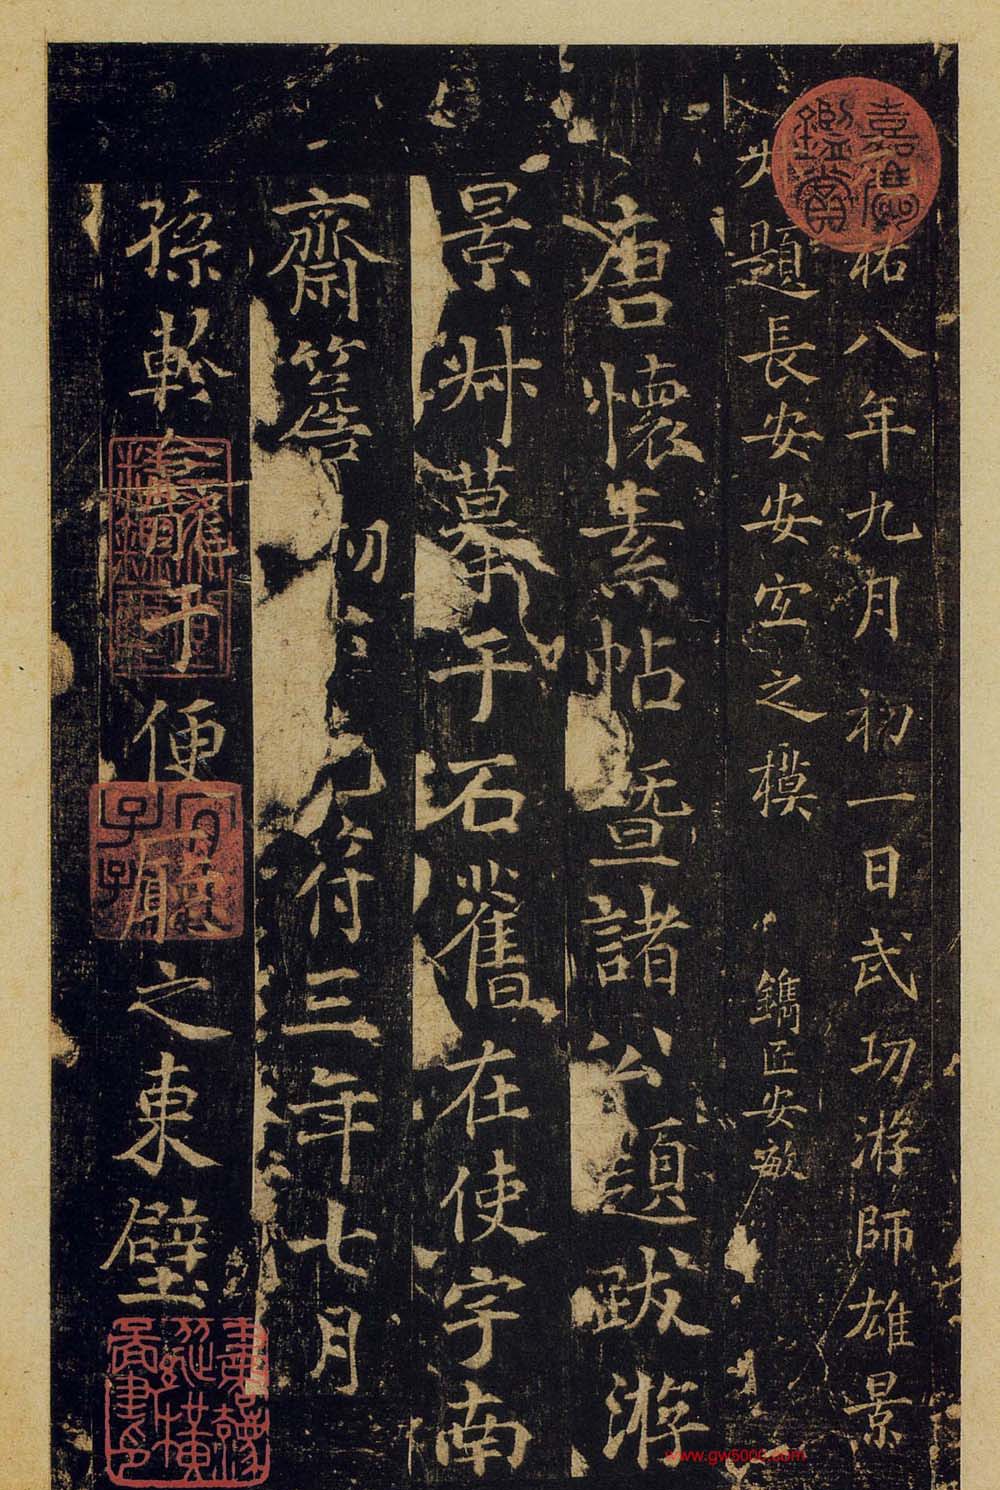 祐八年九月初一日武功游師雄景
题長安安宜之模 鐫匠安敏
唐懷素帖暨諸公題跋游
景叔摹于石舊在使字南
齋 符三年七月
孫軫 于便廳之東壁
嘉慶鑑賞
宜子孫
www.gw5000.com